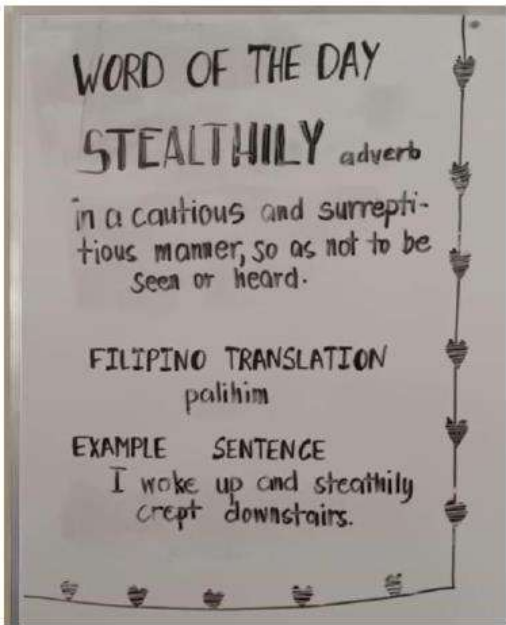 WORD OF THE DAY
STEALTHILY adverb
in a cautious and surrepti-
tious manner, so as not to be
seen or heard.
FILIPINO TRANSLATION
palihim
EXAMPLE SENTENCE
I woke up and steathily
crept downstairs.